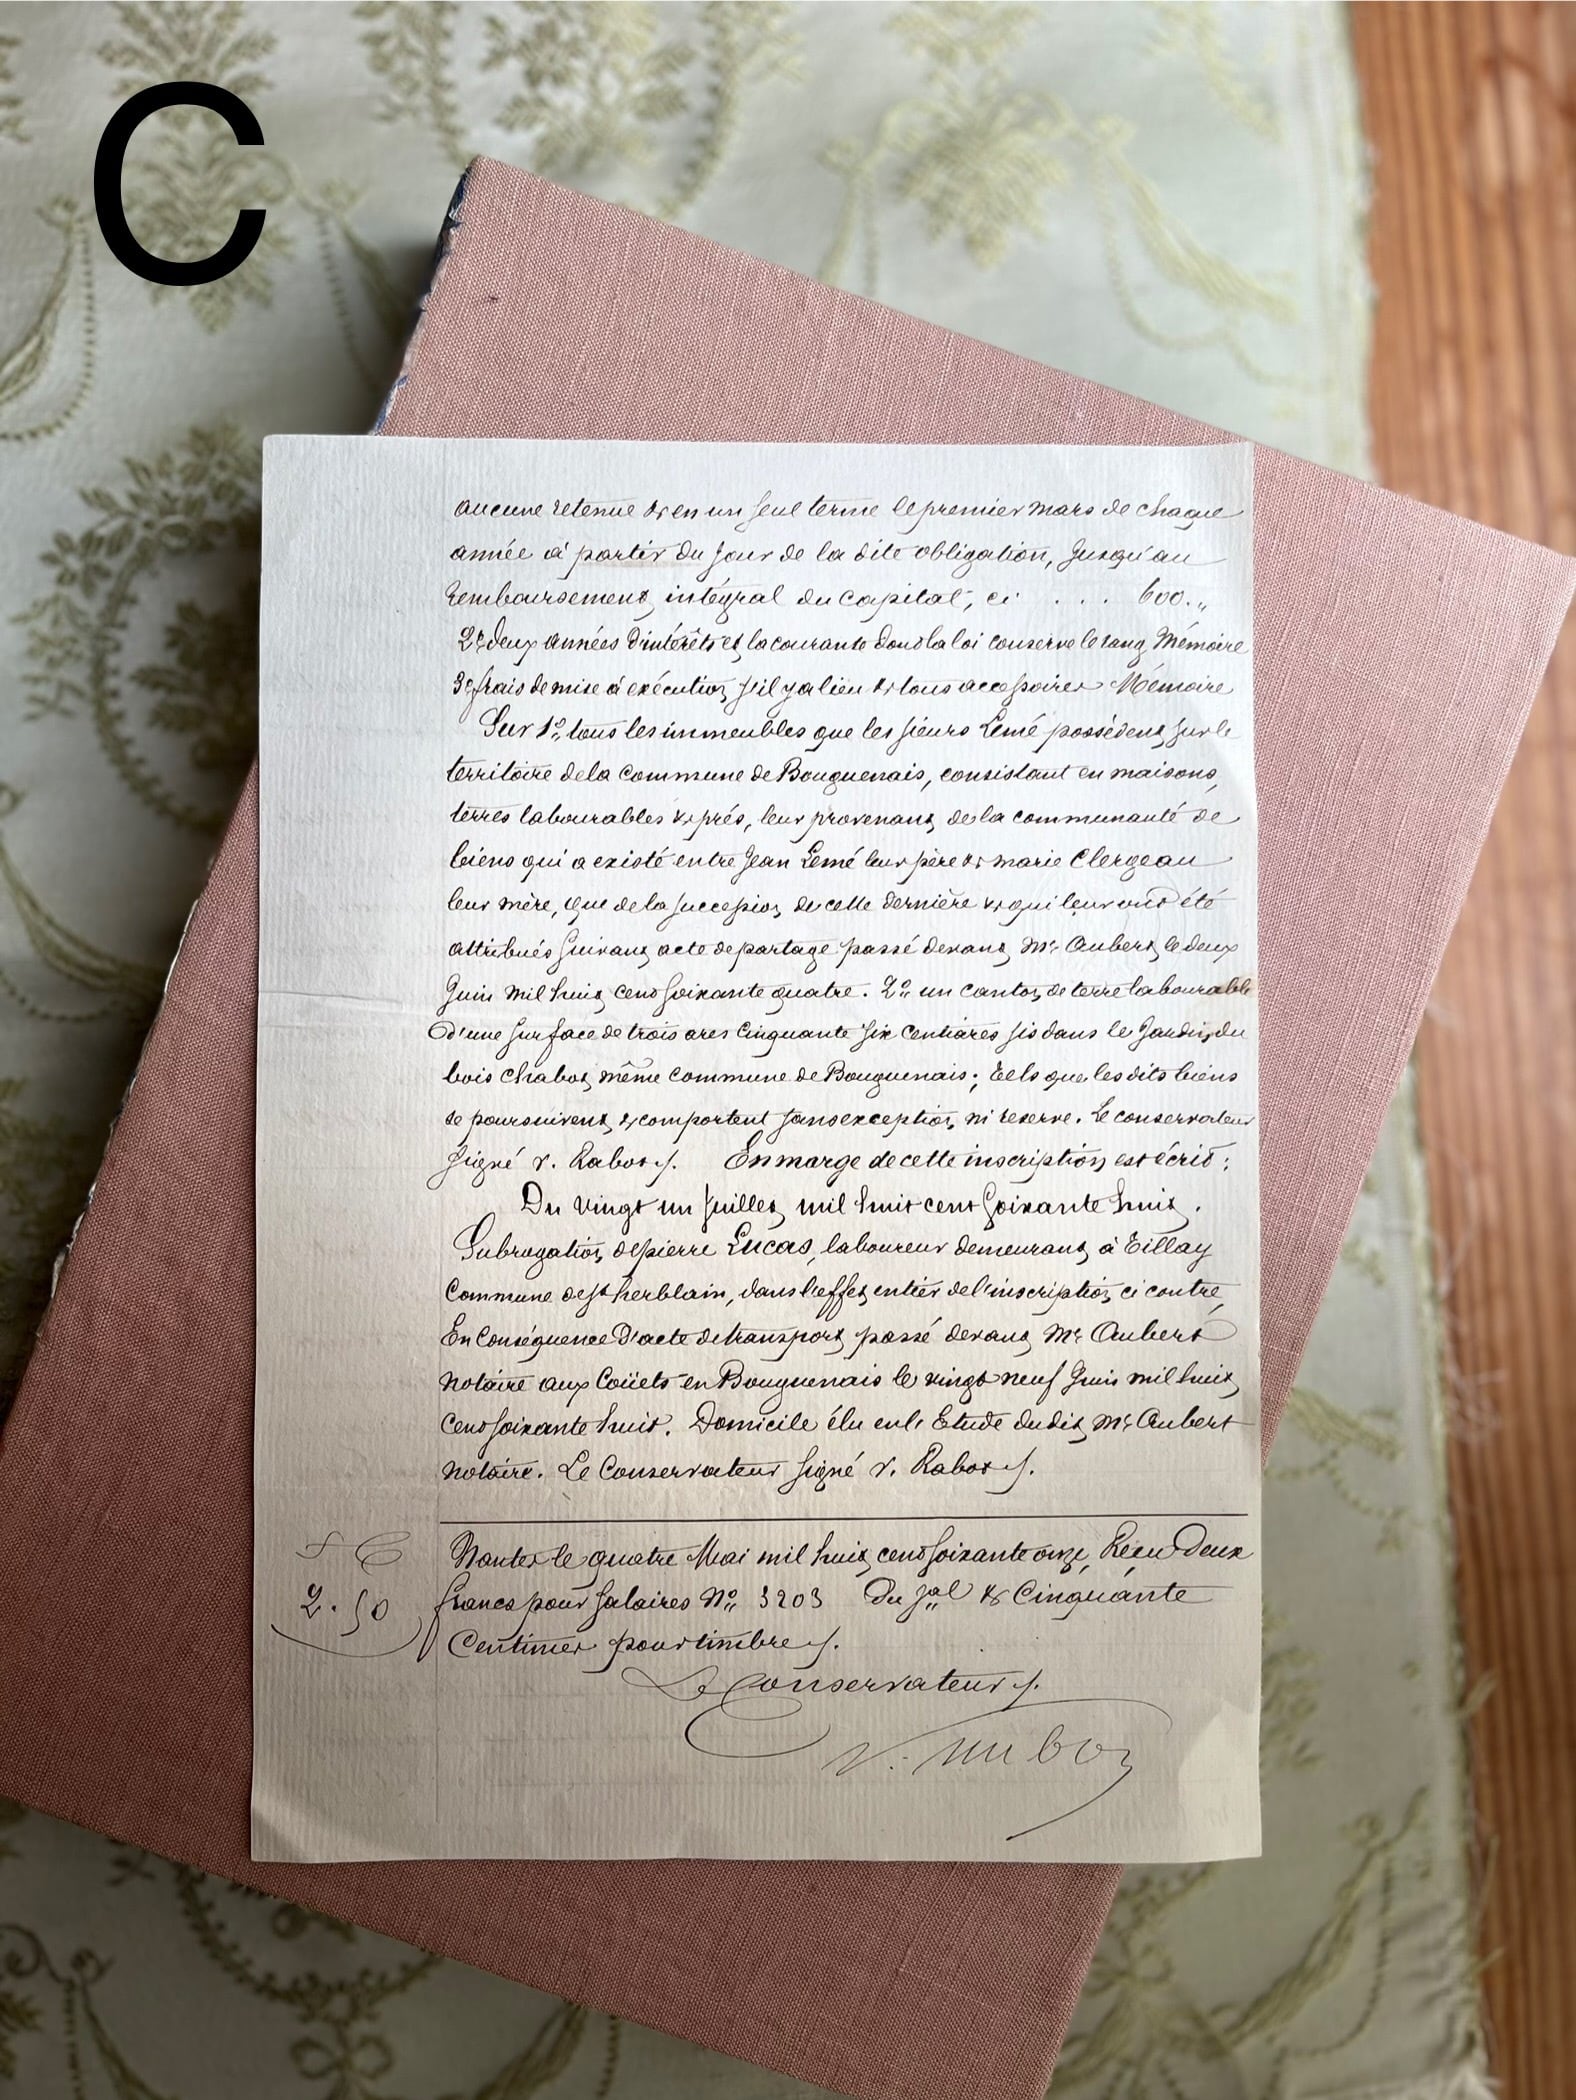 C
aucune retenue & en un seul terme le premier mars de chaque
année à partir du jour de la dite obligation, jusqu'au
remboursement intégral du capital, ci . . . 600.,,
2° deux années d'intérêts et la courante dont la loi conserve le rang Mémoire
3° frais de mise à exécution s'il y a lieu & tous accessoires Mémoire
Sur 1° tous les immeubles que les sieurs Lemé possèdent sur le
territoire de la commune de Bouguenais, consistant en maisons,
terres labourables & prés, leur provenant de la communauté de
biens qui a existé entre Jean Lemé leur père & marie Clergeau
leur mère, que de la succession de cette dernière & qui leur ont été
attribués suivant acte de partage passé devant Me Aubert le deux
Juin mil huit cent soixante quatre. 2° un canton de terre labourable
d'une surface de trois ares cinquante six centiares sis dans le Jardin du
bois Chabot même commune de Bouguenais; tels que les dits biens
se poursuivent & comportent sans exception ni reserve. Le conservateur
signé v. Rabot /. En marge de cette inscription est écrit:
Du vingt un Juillet mil huit cent soixante huit.
Subrogation de pierre Lucas, laboureur demeurant à Tillay
Commune de St herblain, dans l'effet entier de l'inscription ci contre,
En Conséquence d'acte de transport passé devant Me Aubert
notaire aux Coüets en Bouguenais le vingt neuf Juin mil huit
cent soixante huit. Domicile élu en l'Etude dudit Me Aubert
notaire. Le Conservateur signé v. Rabot /.
Nantes le quatre Mai mil huit cent soixante onze, Reçu Deux
2.50 francs pour salaires N° 3203 Du Jal & Cinquante
Centimes pour timbre /.
Le Conservateur /.